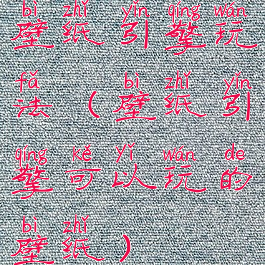 bì zhǐ yǐn qíng wán
壁纸引擎玩
fǎ bì zhǐ yǐn
法（壁纸引
qíng kě yǐ wán de
擎可以玩的
bì zhǐ
壁纸）